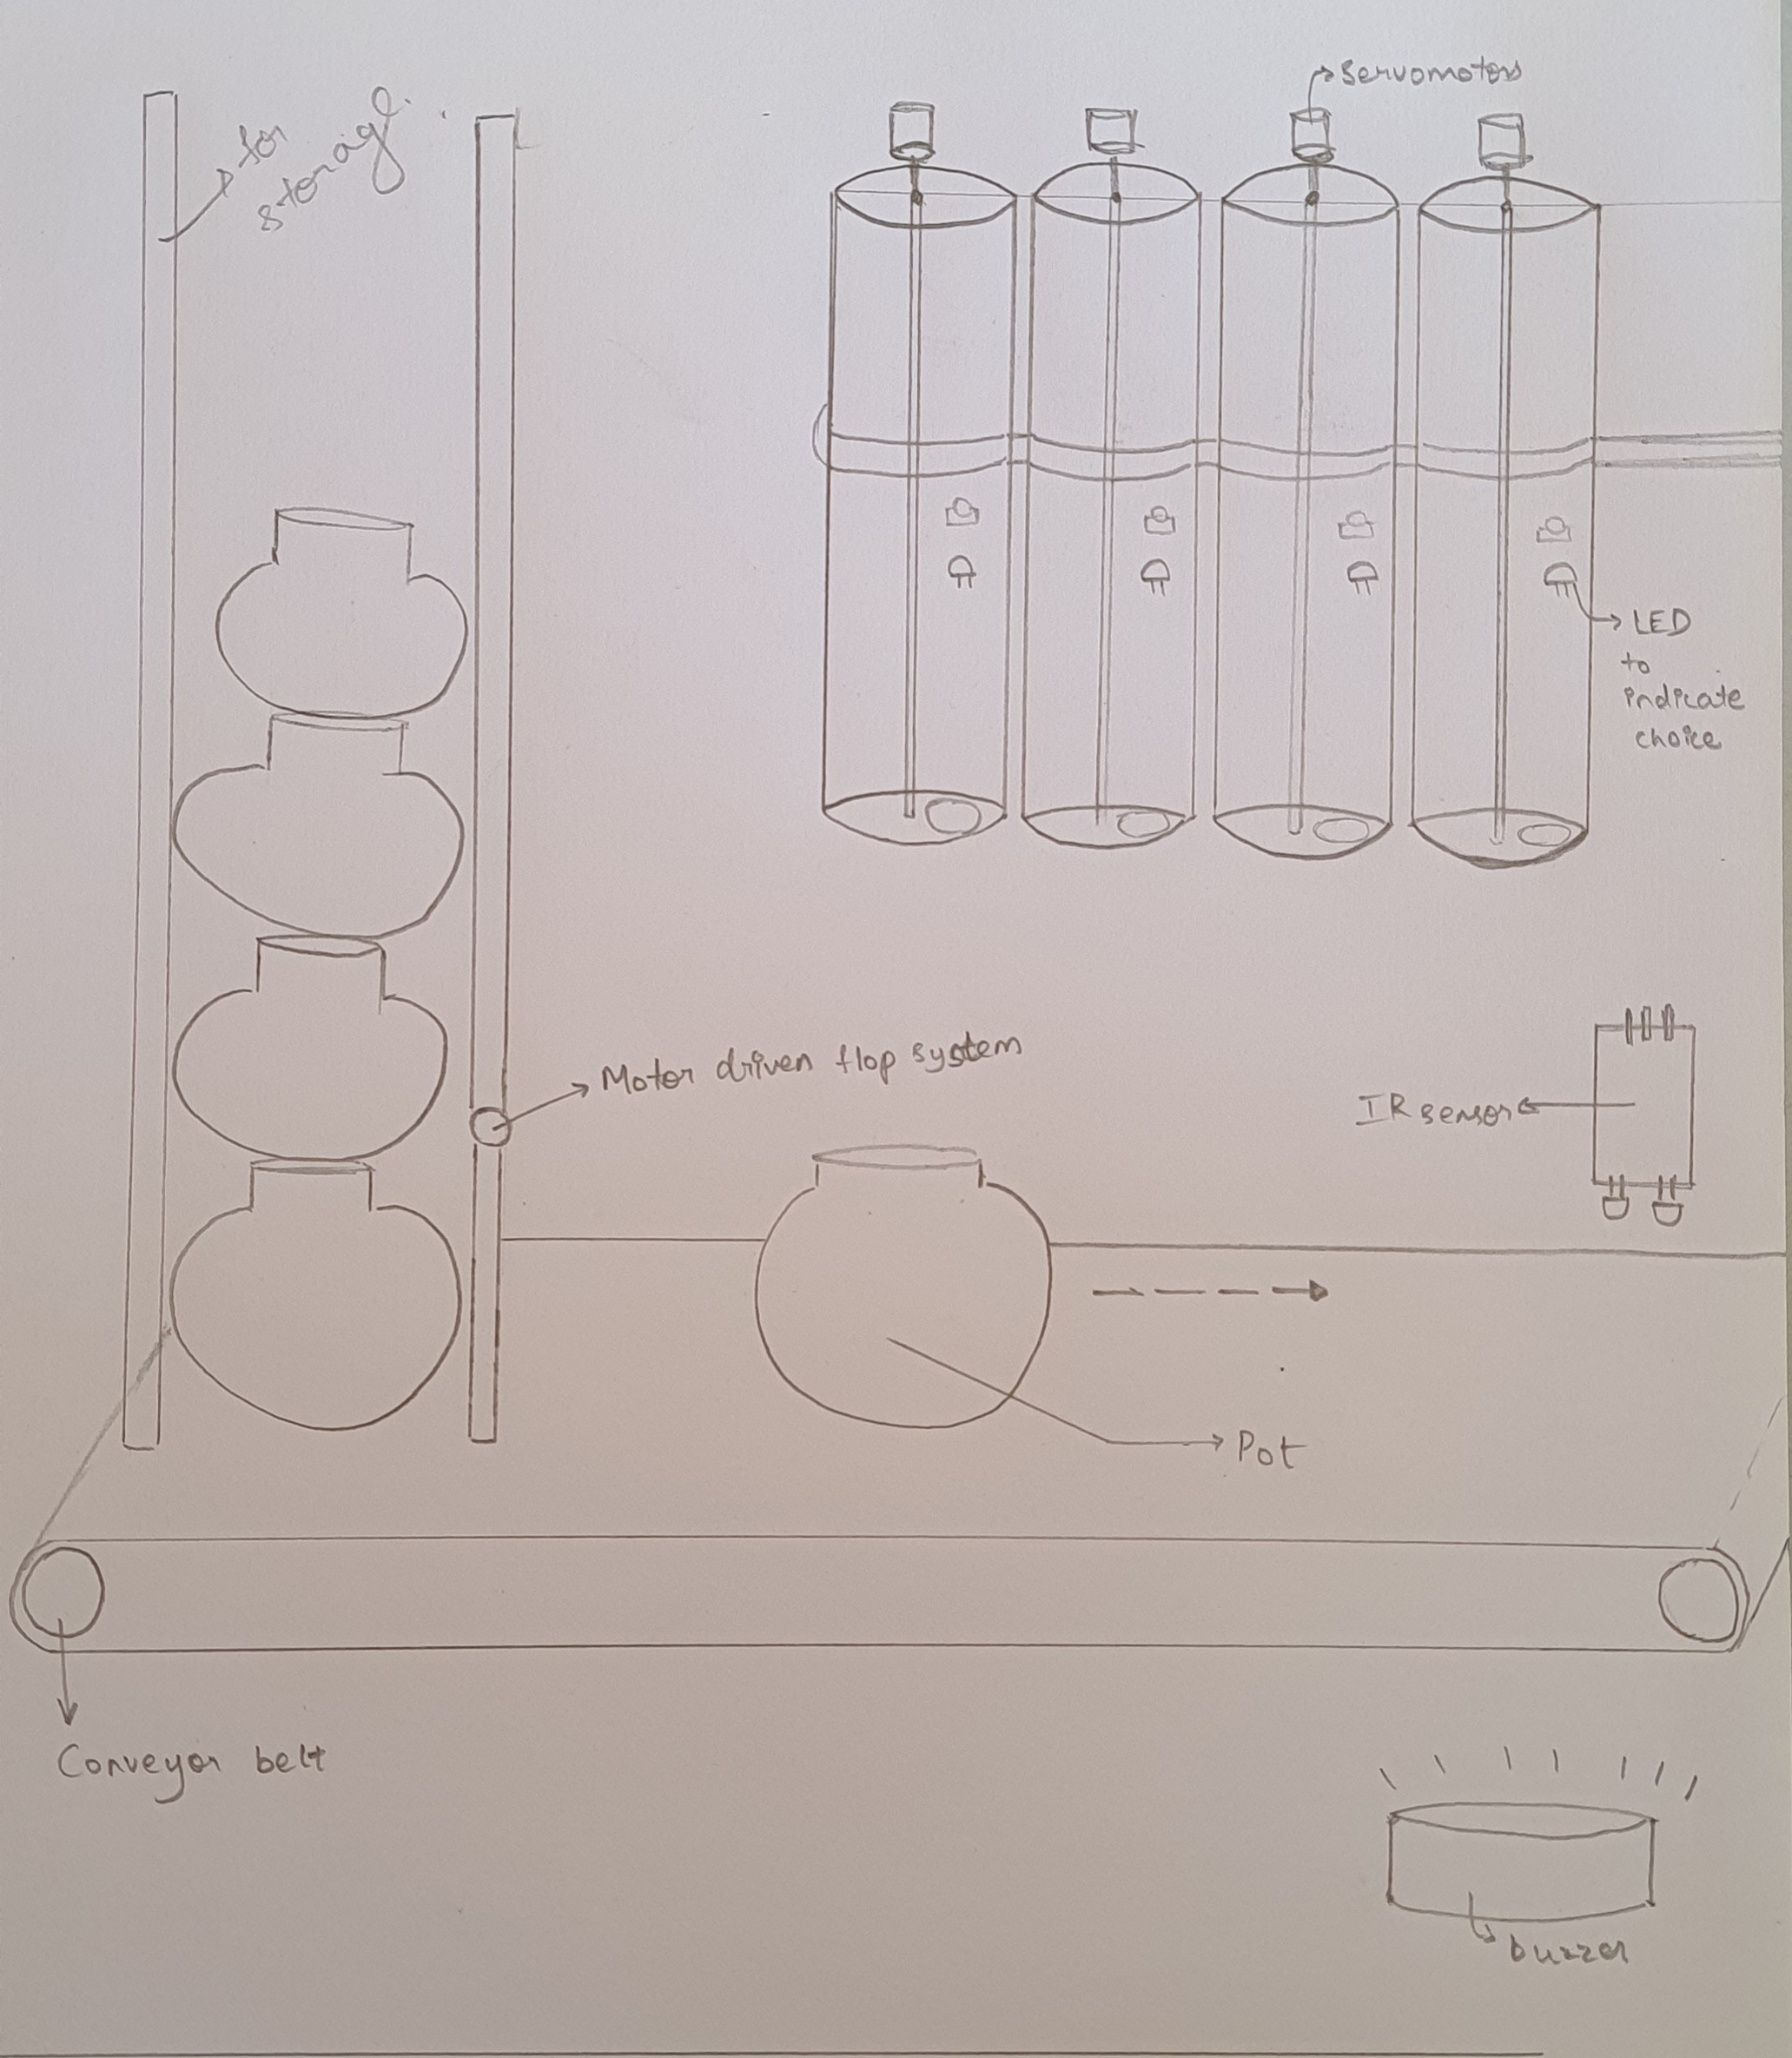 Servomotors
for
storage.
LED
to
indicate
choice
Motor driven flop system
IR sensor
Pot
Conveyor belt
buzzer